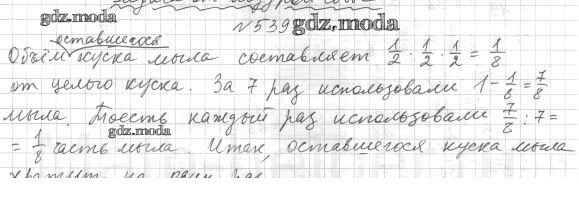 gdz.moda
№539 gdz.moda
оставшегося
Объём куска мыла составляет 1/2 · 1/2 · 1/2 = 1/8
от целого куска. За 7 раз использовали 1 - 1/8 = 7/8
мыла. Тоесть каждый раз использовали 7/8 : 7 =
gdz.moda
= 1/8 часть мыла. Итак, оставшегося куска мыла